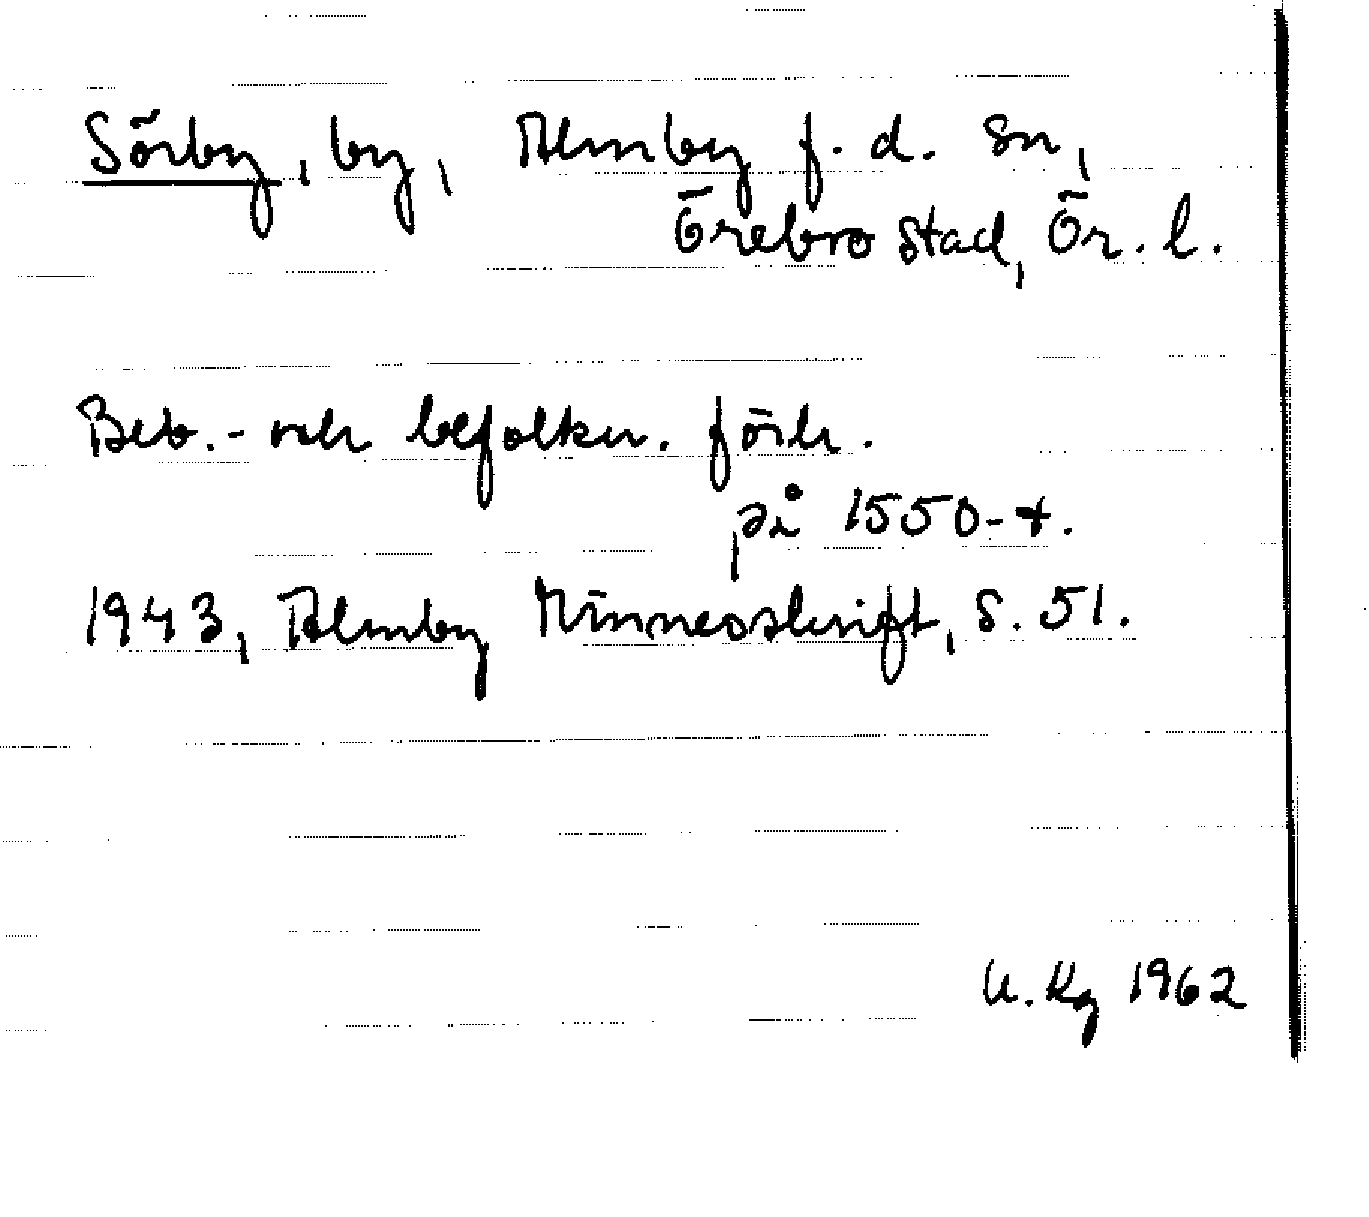 Sörby, by, Almby f.d. sn,
Örebro stad, Ör. l.
Beb.- och befolkn. förh.
på 1550-t.
1943, Almby Minnesskrift, s. 51.
U. Kg 1962